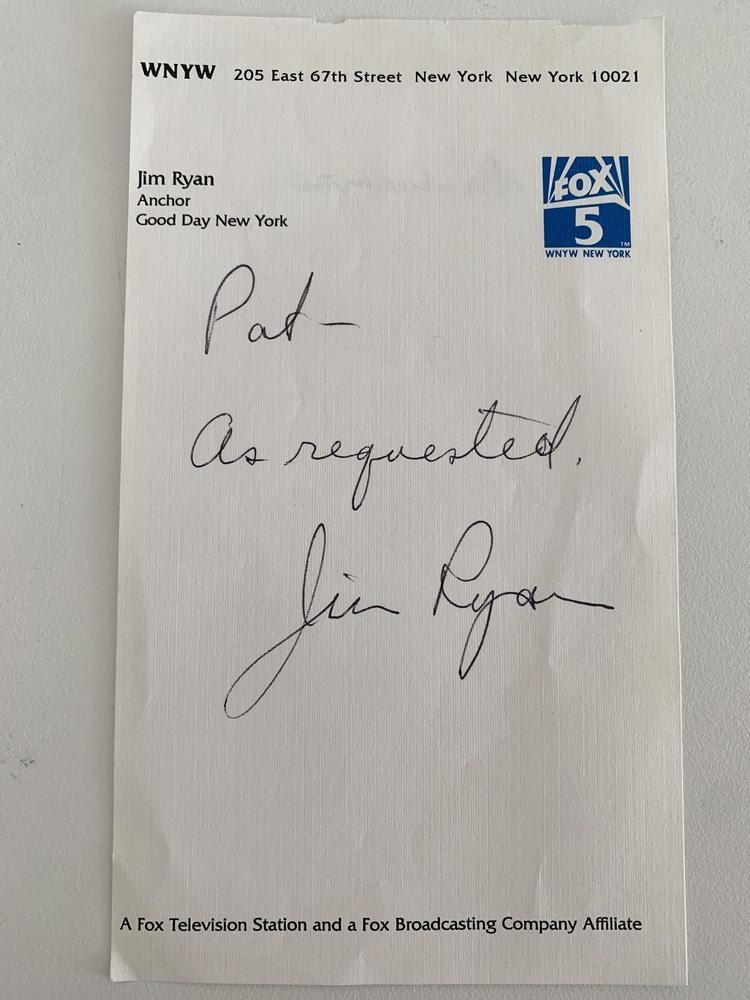 WNYW 205 East 67th Street New York New York 10021
Jim Ryan
Anchor
Good Day New York
FOX
5
TM
WNYW NEW YORK
Pat-
As requested.
Jim Ryan
A Fox Television Station and a Fox Broadcasting Company Affiliate